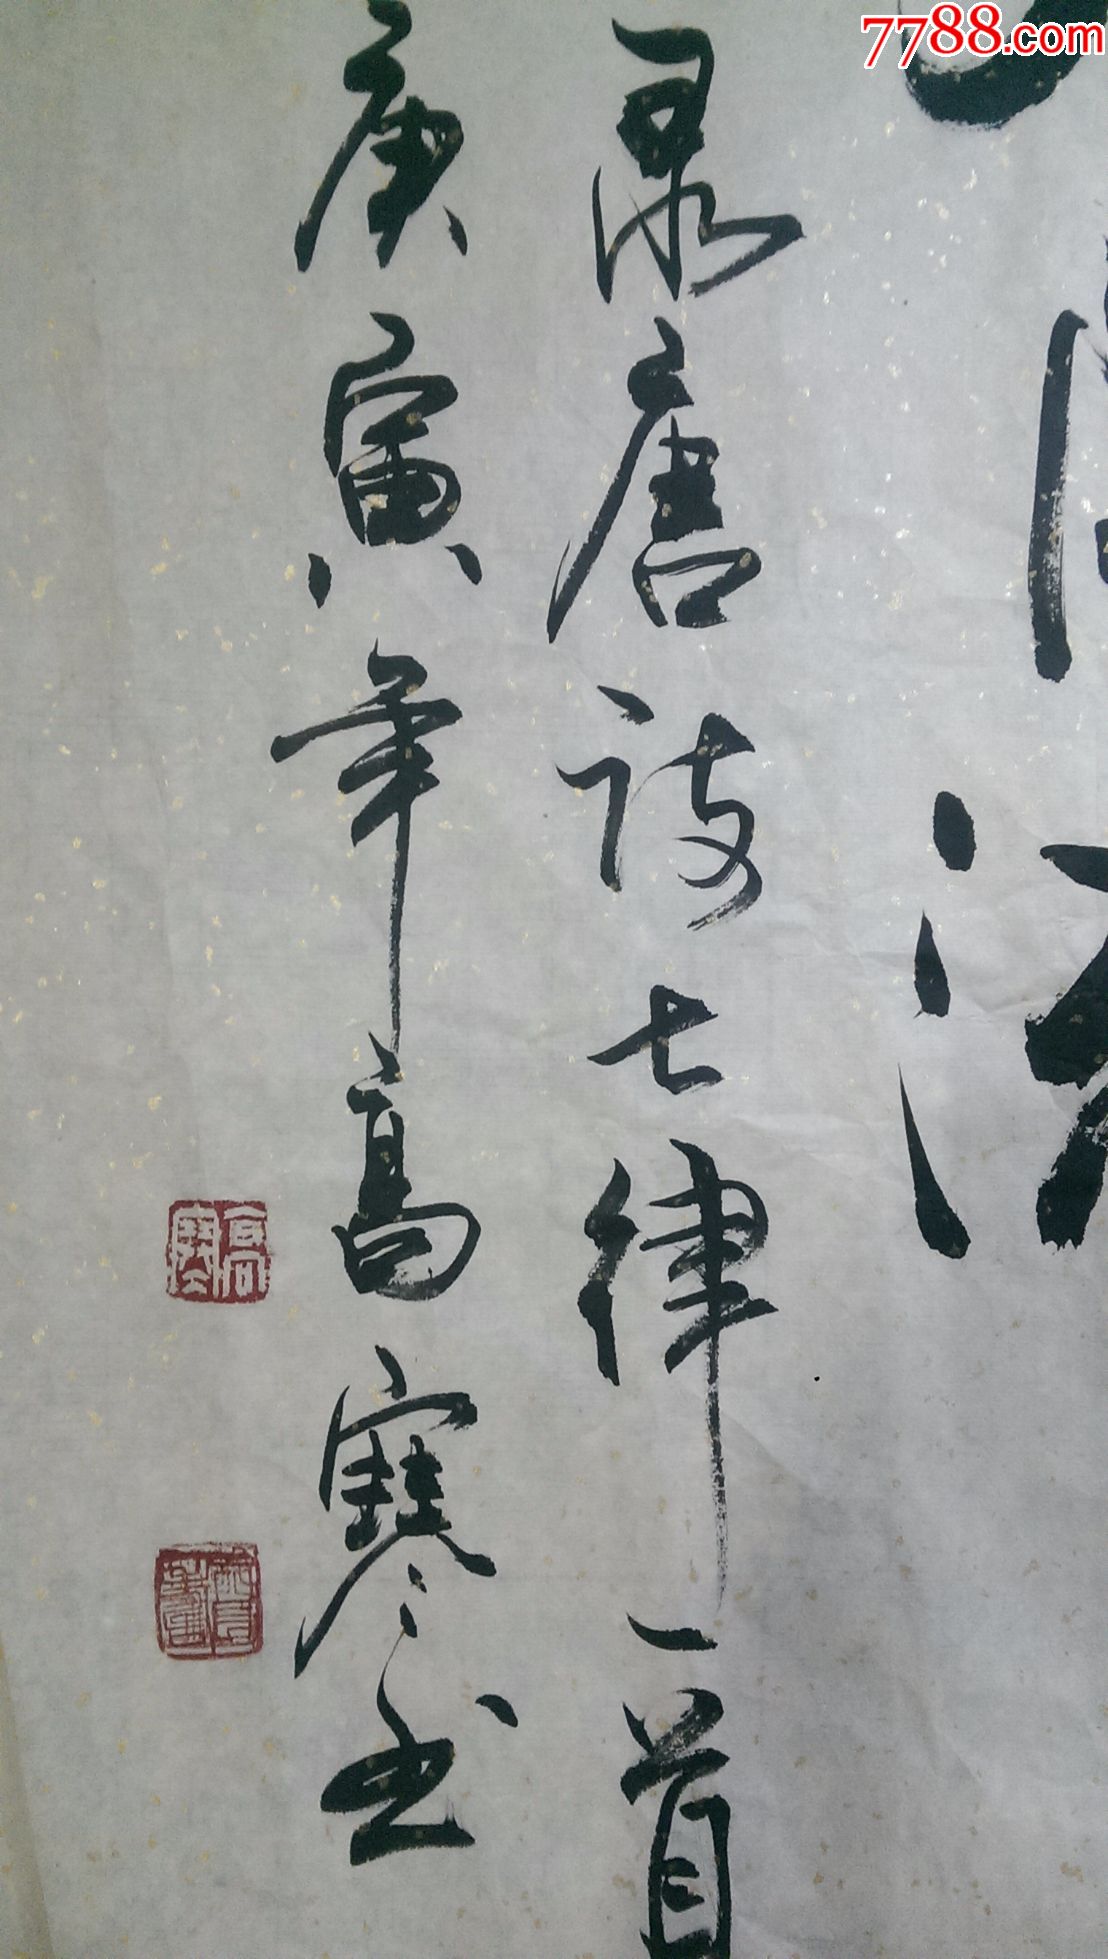 7788.com
录唐诗七律一首
庚寅年高寒书
高寒